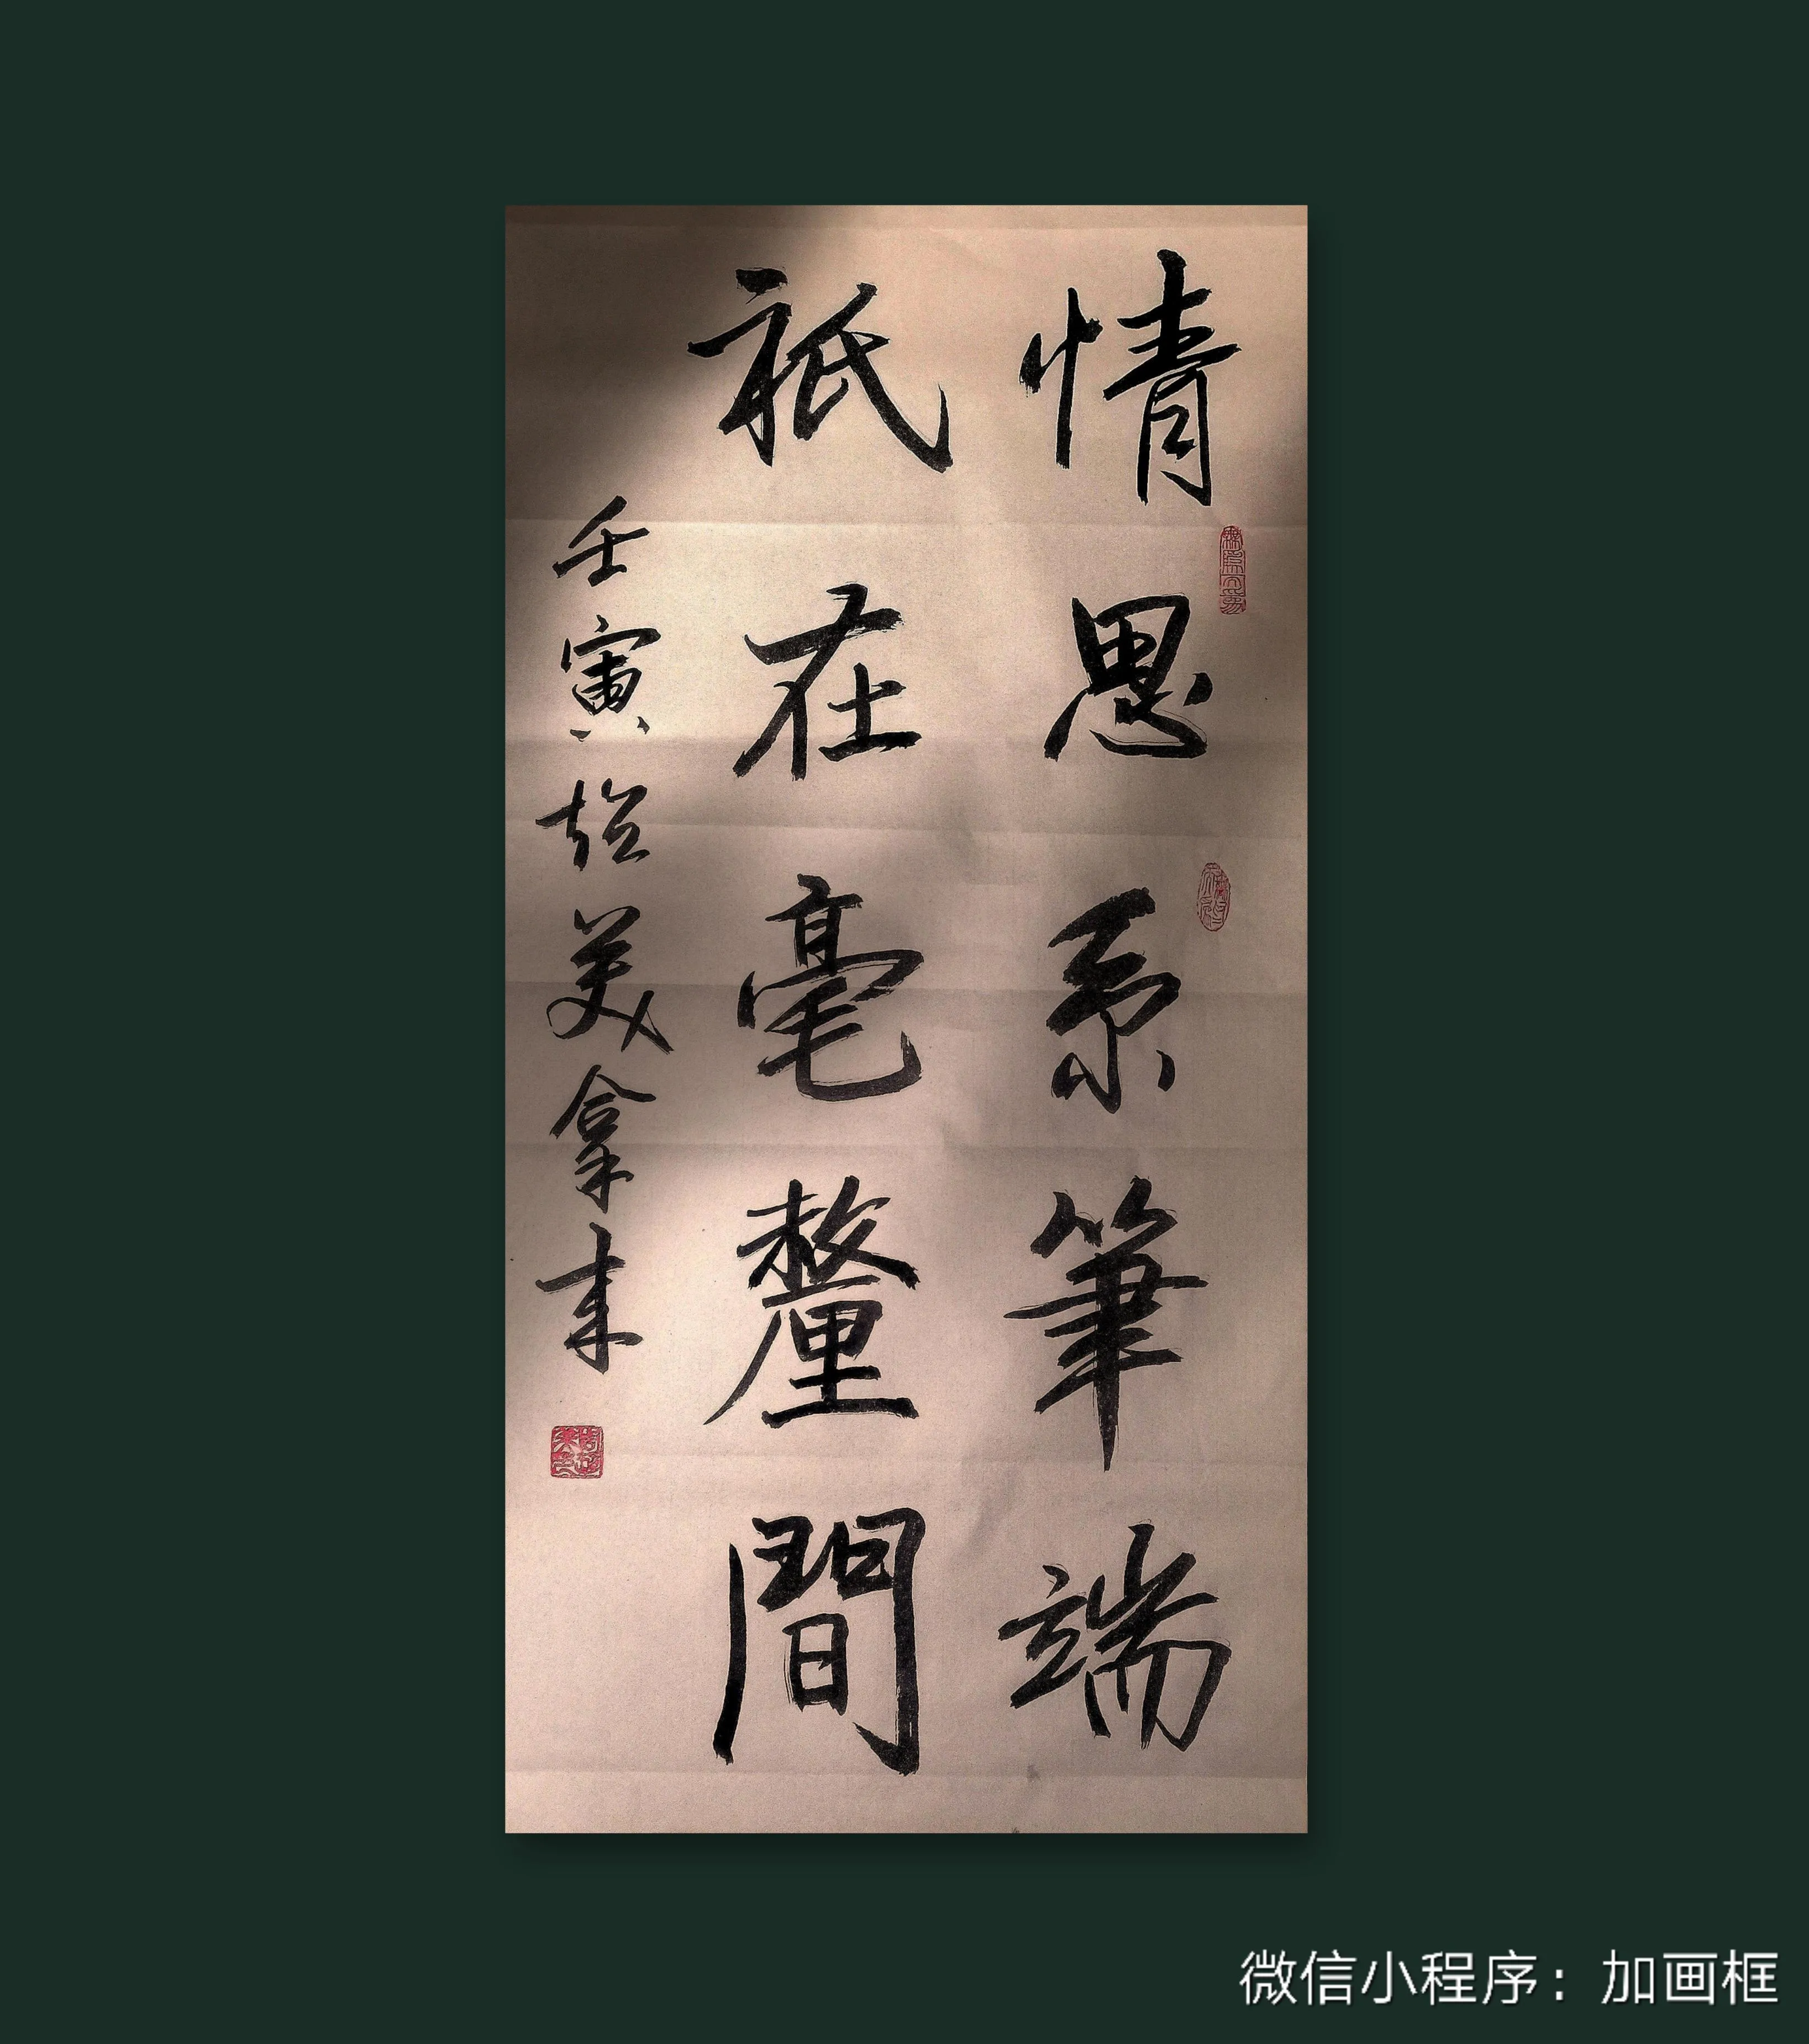 情思系筆端
祇在毫釐間
壬寅 美拿來
微信小程序：加画框